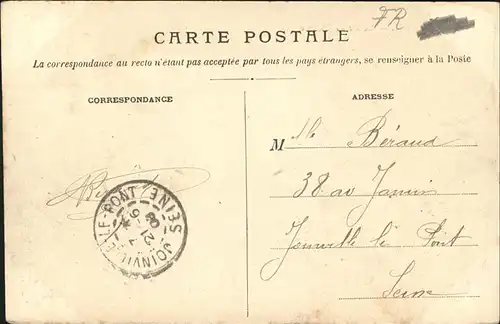 FR
CARTE POSTALE
La correspondance au recto n'étant pas acceptée par tous les pays étrangers, se renseigner à la Poste
CORRESPONDANCE
ADRESSE
Mlle Béraud
38 av Jamin
Joinville le Pont
Seine
JOINVILLE-LE-PONT SEINE